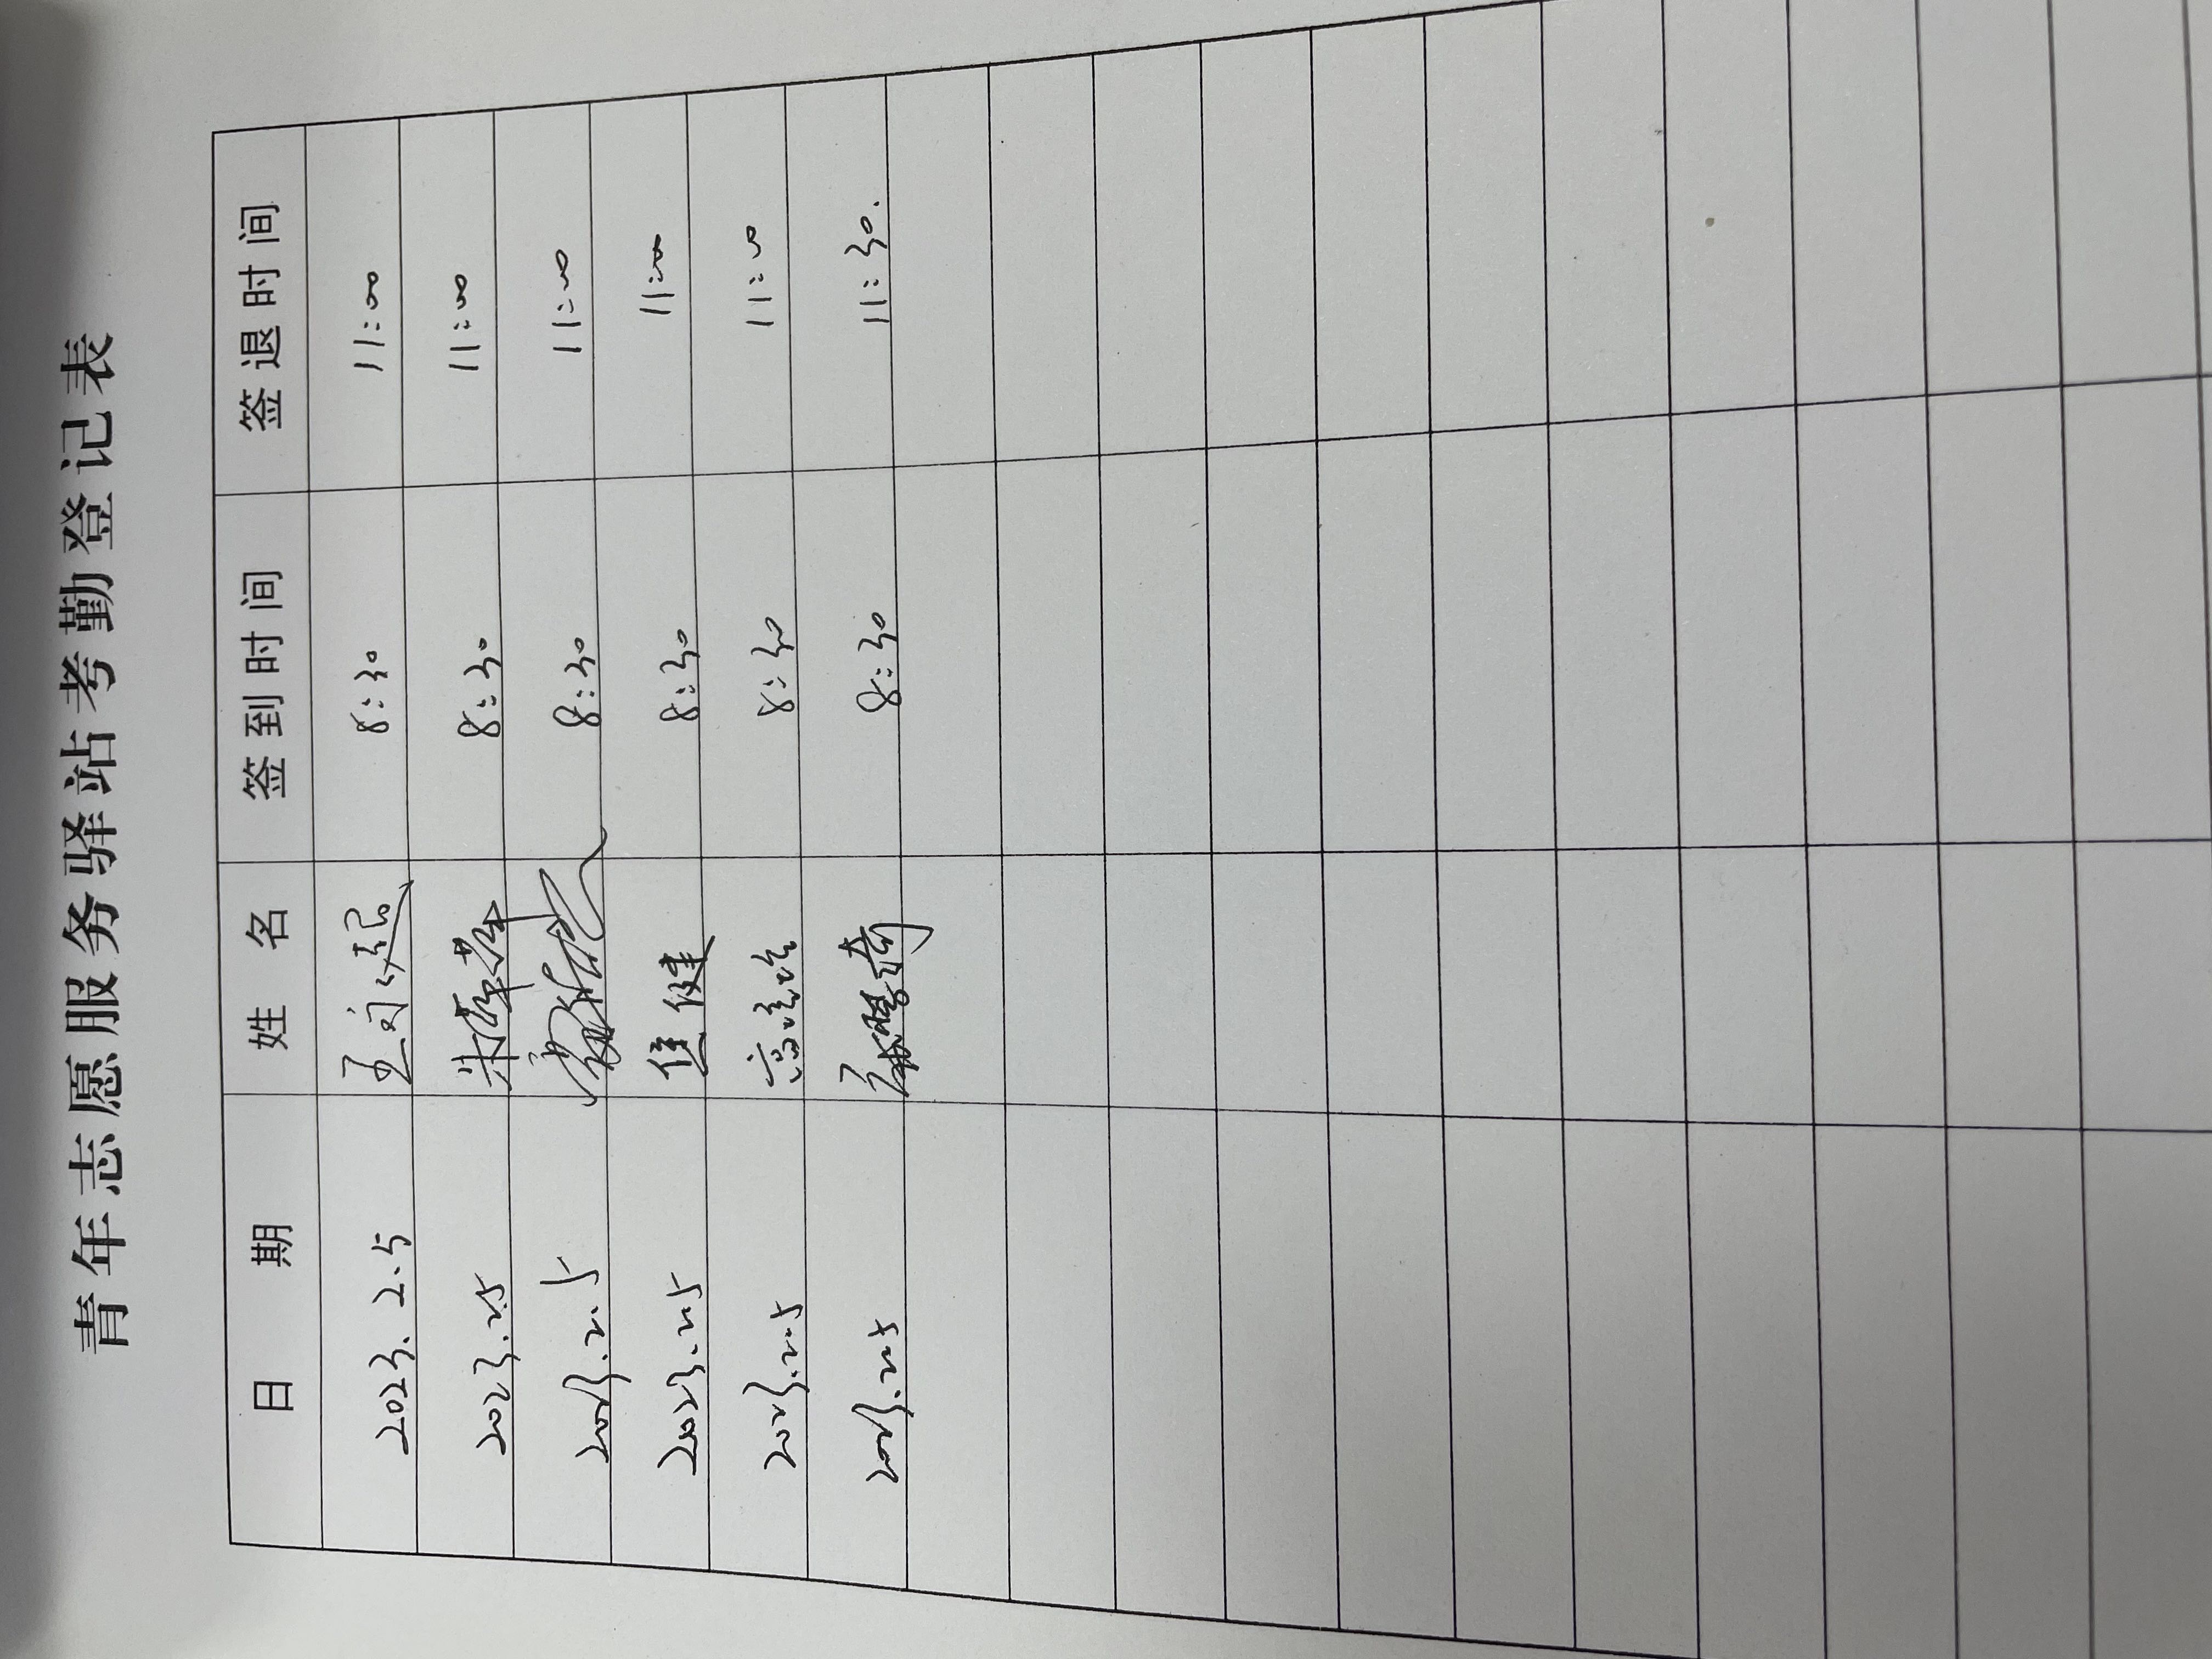 青年志愿服务驿站考勤登记表
日期 姓名 签到时间 签退时间
2023.2.5 8:30 11:00
2023.2.5 8:30 11:00
2023.2.5 8:30 11:00
2023.2.5 焦健 8:30 11:00
2023.2.5 8:30 11:00
2023.2.5 8:30 11:30.